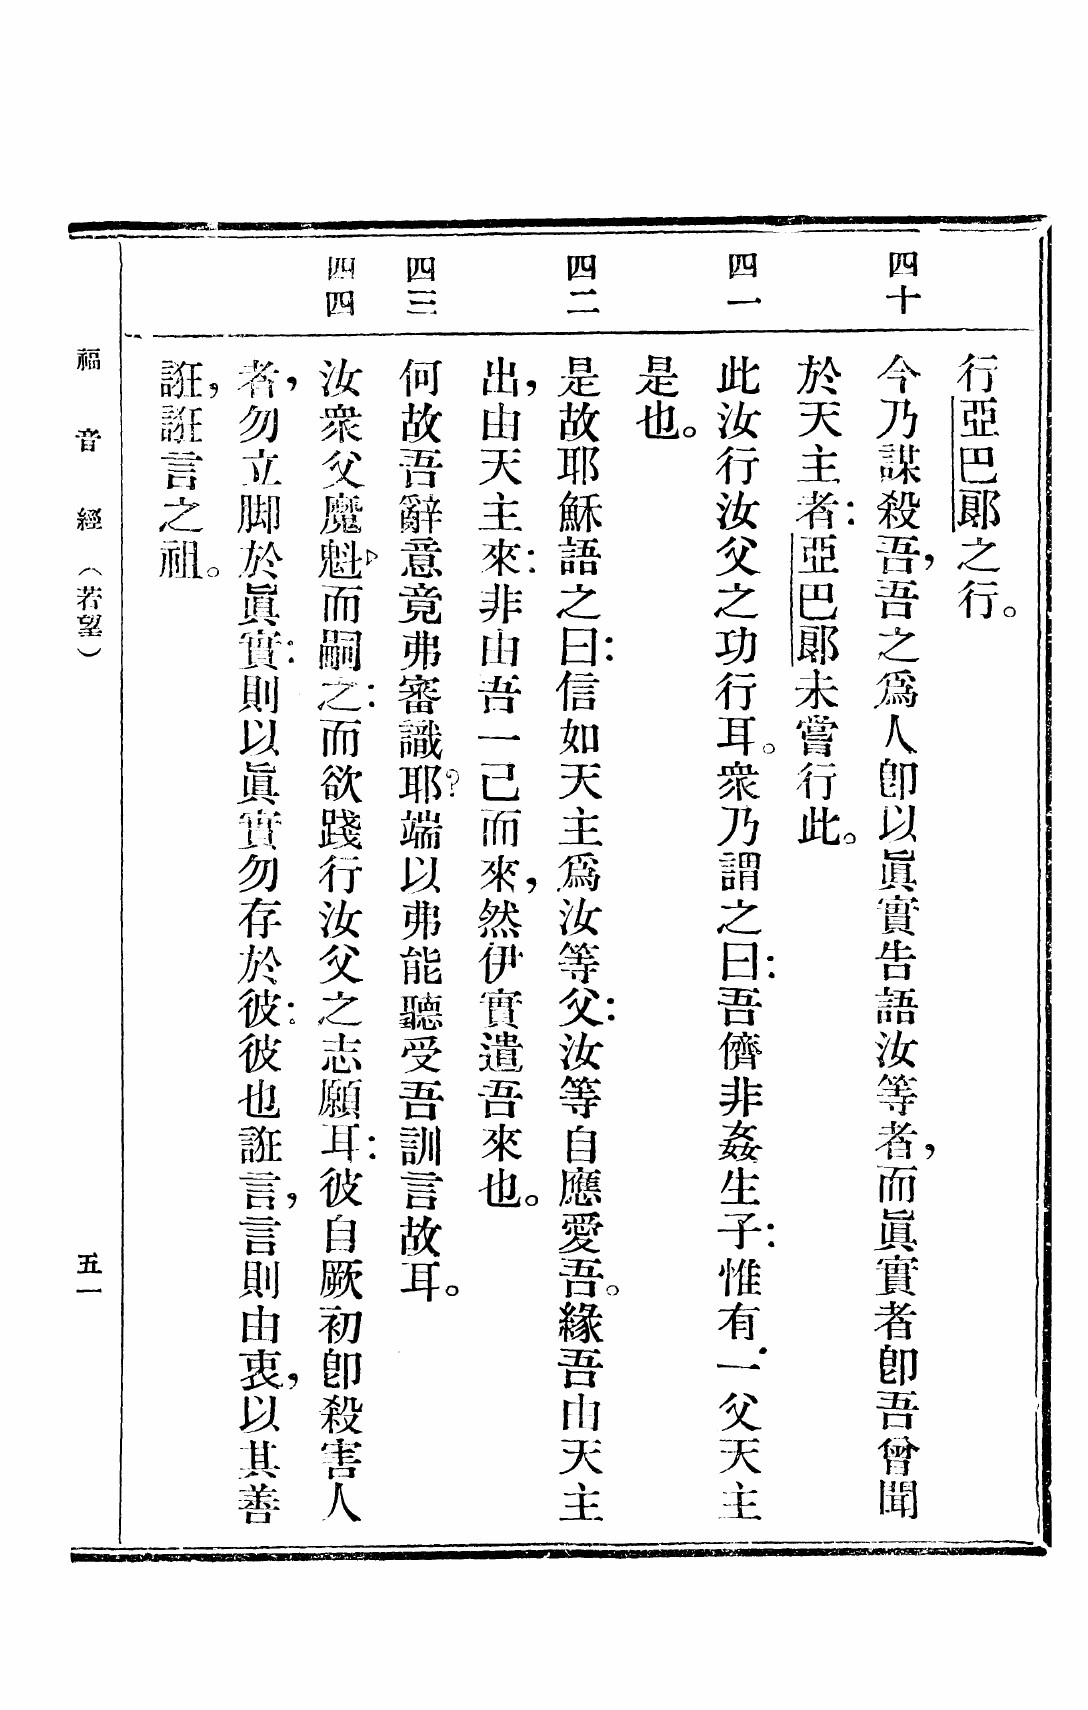 行亞巴郞之行。
四十
今乃謀殺吾，吾之爲人卽以眞實吿語汝等者，而眞實者卽吾曾聞
於天主者：亞巴郞未嘗行此。
四一
此汝行汝父之功行耳。衆乃謂之曰：吾儕非姦生子：惟有一父天主
是也。
四二
是故耶穌語之曰：信如天主爲汝等父：汝等自應愛吾。緣吾由天主
出，由天主來：非由吾一己而來，然伊實遣吾來也。
四三
何故吾辭意竟弗審識耶？端以弗能聽受吾訓言故耳。
四四
汝衆父魔魁，而嗣之：而欲踐行汝父之志願耳：彼自厥初卽殺害人
者，勿立脚於眞實：則以眞實勿存於彼：彼也誑言，言則由衷，以其善
誑，誑言之祖。
福音經（若望）
五一